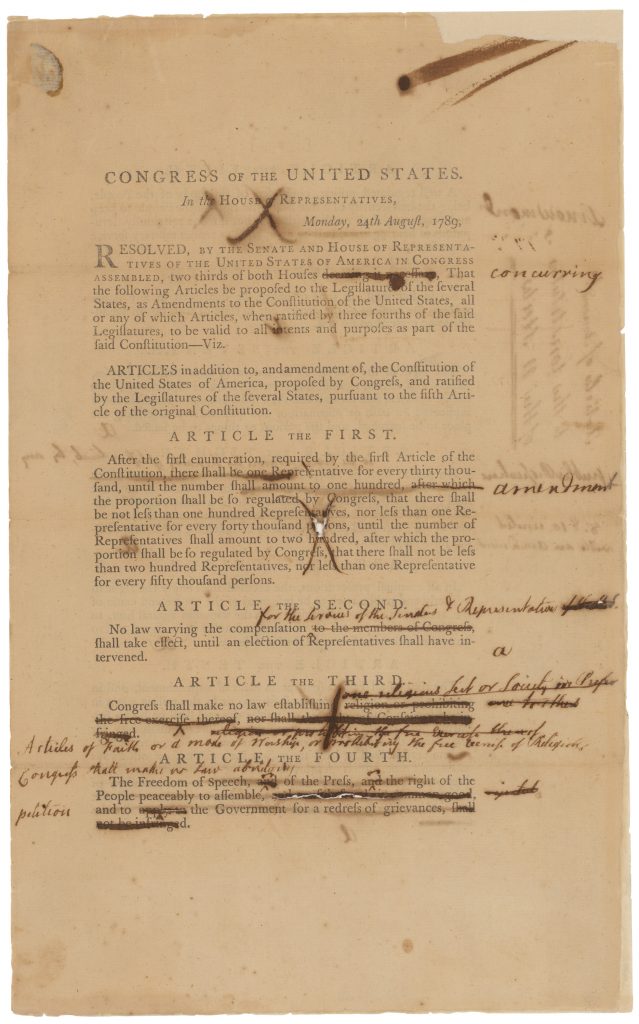 CONGRESS OF THE UNITED STATES.
In the HOUSE of REPRESENTATIVES,
Monday, 24th Auguſt, 1789,
RESOLVED, BY THE SENATE AND HOUSE OF REPRESENTA-
TIVES OF THE UNITED STATES OF AMERICA IN CONGRESS
ASSEMBLED, two thirds of both Houſes deeming it neceſſary, That concurring
the following Articles be propoſed to the Legiſlatures of the ſeveral
States, as Amendments to the Conſtitution of the United States, all
or any of which Articles, when ratified by three fourths of the ſaid
Legiſlatures, to be valid to all intents and purpoſes as part of the
ſaid Conſtitution—Viz.
ARTICLES in addition to, and amendment of, the Conſtitution of
the United States of America, propoſed by Congreſs, and ratified
by the Legiſlatures of the ſeveral States, purſuant to the fifth Arti-
cle of the original Conſtitution.
ARTICLE THE FIRST.
After the firſt enumeration, required by the firſt Article of the
Conſtitution, there ſhall be one Repreſentative for every thirty thou-
ſand, until the number ſhall amount to one hundred, after which amendment
the proportion ſhall be ſo regulated by Congreſs, that there ſhall
be not leſs than one hundred Repreſentatives, nor leſs than one Re-
preſentative for every forty thouſand perſons, until the number of
Repreſentatives ſhall amount to two hundred, after which the pro-
portion ſhall be ſo regulated by Congreſs, that there ſhall not be leſs
than two hundred Repreſentatives, nor leſs than one Repreſentative
for every fifty thouſand perſons.
ARTICLE THE SECOND.
for the ſervices of the Senators & Repreſentatives
No law varying the compenſation to the members of Congreſs,
ſhall take effect, until an election of Repreſentatives ſhall have in-
tervened.
a
ARTICLE THE THIRD.
one religious Sect or Society in
Congreſs ſhall make no law eſtabliſhing religion or prohibiting
the free exerciſe thereof, nor ſhall the
fringed.
Articles of Faith or a mode of Worship, or prohibiting the free exercise of Religion,
ARTICLE THE FOURTH.
Congreſs ſhall make no Law abridging
The Freedom of Speech, and of the Preſs, and the right of the
People peaceably to aſſemble,
petition and to the Government for a redreſs of grievances, ſhall
not be infringed.